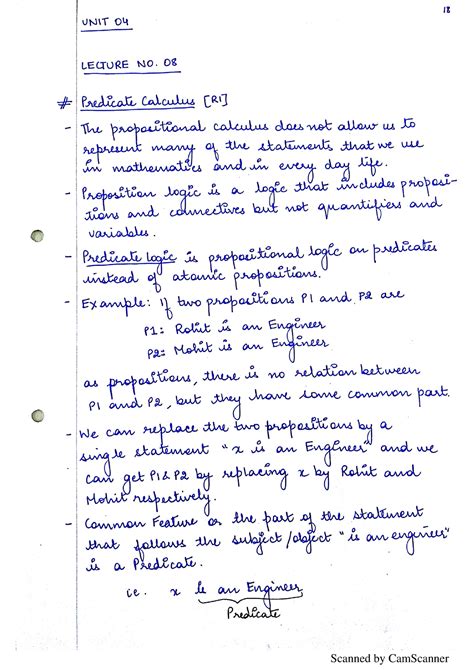 18
UNIT 04
LECTURE NO. 08
# Predicate Calculus [R1]
- The propositional calculus does not allow us to
represent many of the statements that we use
in mathematics and in every day life.
- Proposition logic is a logic that includes proposi-
tions and connectives but not quantifiers and
variables.
- Predicate logic is propositional logic on predicates
instead of atomic propositions.
- Example: If two propositions P1 and P2 are
P1: Rohit is an Engineer
P2: Mohit is an Engineer
as propositions, there is no relation between
P1 and P2, but they have some common part.
- We can replace the two propositions by a
single statement "x is an Engineer" and we
can get P1 & P2 by replacing x by Rohit and
Mohit respectively.
- Common Feature or the part of the statement
that follows the subject/object "is an engineer"
is a Predicate.
i.e. x is an Engineer
Predicate
Scanned by CamScanner